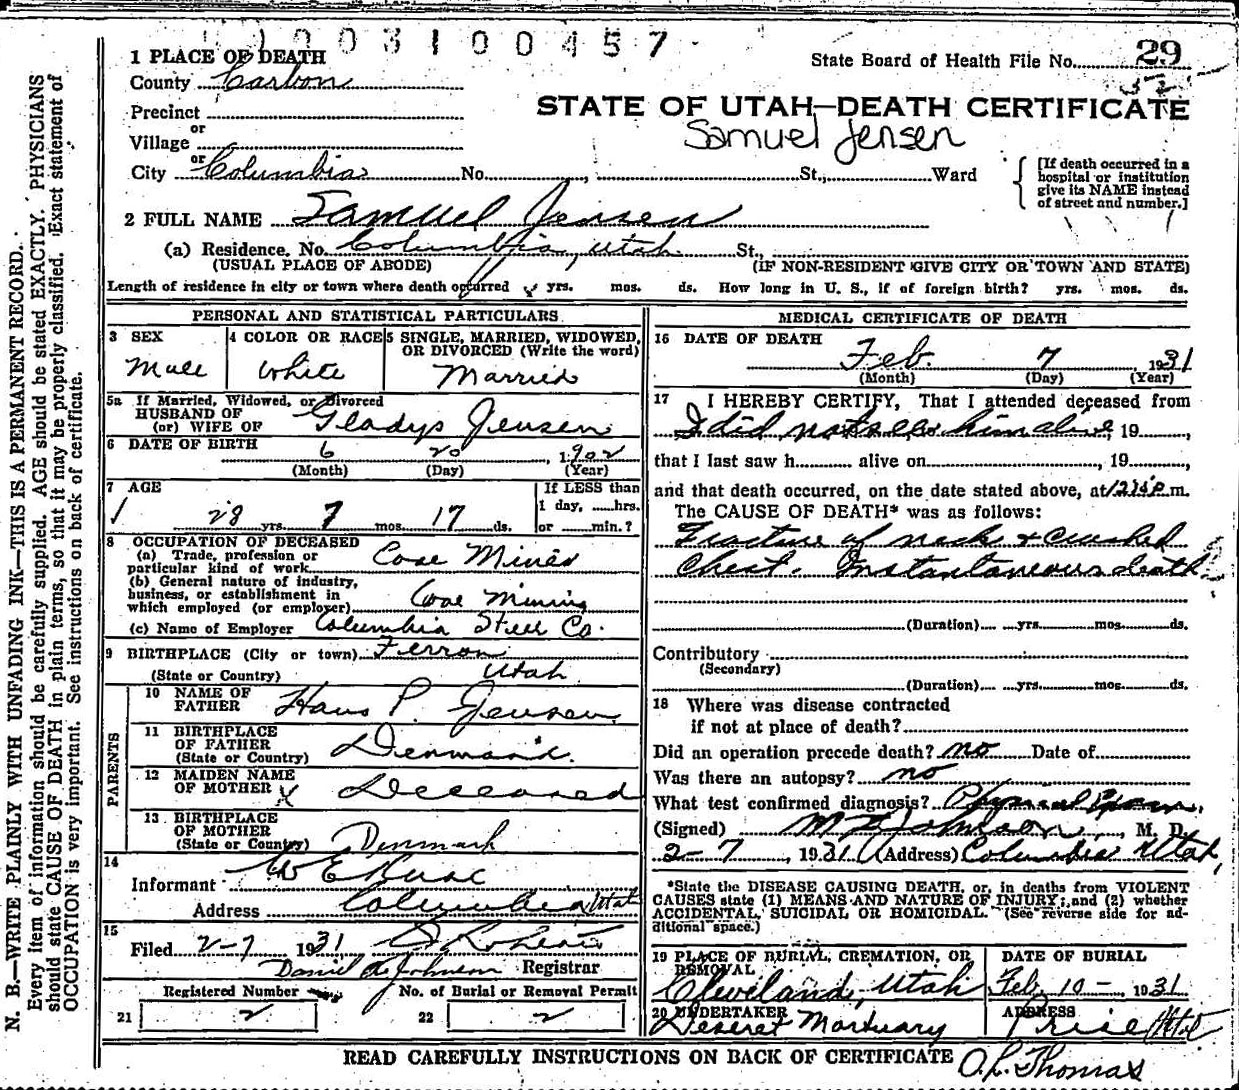 1003100457
1 PLACE OF DEATH
State Board of Health File No. 29
County Carbon
STATE OF UTAH—DEATH CERTIFICATE
Precinct
or
Samuel Jensen
Village
or
City Columbia No. St., Ward
[If death occurred in a
hospital or institution
give its NAME instead
of street and number.]
2 FULL NAME Samuel Jensen
(a) Residence. No. Columbia, Utah. St.,
(USUAL PLACE OF ABODE) (IF NON-RESIDENT GIVE CITY OR TOWN AND STATE)
Length of residence in city or town where death occurred yrs. mos. ds. How long in U. S., if of foreign birth? yrs. mos. ds.
PERSONAL AND STATISTICAL PARTICULARS
3 SEX
Male
4 COLOR OR RACE
White
5 SINGLE, MARRIED, WIDOWED,
OR DIVORCED (Write the word)
Married
5a If Married, Widowed, or Divorced
HUSBAND OF
(or) WIFE OF Gladys Jensen
6 DATE OF BIRTH
6 20, 1902
(Month) (Day) (Year)
7 AGE
28 yrs. 7 mos. 17 ds.
If LESS than
1 day, hrs.
or min.?
8 OCCUPATION OF DECEASED
(a) Trade, profession or
particular kind of work Coal Miner
(b) General nature of industry,
business, or establishment in
which employed (or employer) Coal Mining
(c) Name of Employer Columbia Steel Co.
9 BIRTHPLACE (City or town) Ferron
(State or Country) Utah
PARENTS
10 NAME OF
FATHER Hans P. Jensen
11 BIRTHPLACE
OF FATHER
(State or Country) Denmark.
12 MAIDEN NAME
OF MOTHER X Deceased
13 BIRTHPLACE
OF MOTHER
(State or Country) Denmark
14
Informant W E
Address Columbia Utah
15
Filed 2-7 1931
Daniel A. Johnson Registrar
Registered Number No. of Burial or Removal Permit
21 2 22 2
MEDICAL CERTIFICATE OF DEATH
16 DATE OF DEATH
Feb. 7 1931
(Month) (Day) (Year)
17 I HEREBY CERTIFY, That I attended deceased from
I did not see him alive, 19,
that I last saw h alive on, 19,
and that death occurred, on the date stated above, at P.m.
The CAUSE OF DEATH* was as follows:
Fracture of neck & crushed
Chest. Instantaneous death.
(Duration) yrs. mos. ds.
Contributory
(Secondary)
(Duration) yrs. mos. ds.
18 Where was disease contracted
if not at place of death?
Did an operation precede death? no Date of
Was there an autopsy? no
What test confirmed diagnosis? Physical Exam.
(Signed) Johnson, M. D.
2-7, 1931 (Address) Columbia Utah,
*State the DISEASE CAUSING DEATH, or, in deaths from VIOLENT
CAUSES state (1) MEANS AND NATURE OF INJURY; and (2) whether
ACCIDENTAL, SUICIDAL OR HOMICIDAL. (See reverse side for ad-
ditional space.)
19 PLACE OF BURIAL, CREMATION, OR
REMOVAL
Cleveland, Utah
DATE OF BURIAL
Feb. 10 - 1931
20 UNDERTAKER
Deseret Mortuary
ADDRESS
Price Utah
READ CAREFULLY INSTRUCTIONS ON BACK OF CERTIFICATE
O. L. Thomas
N. B.—WRITE PLAINLY WITH UNFADING INK—THIS IS A PERMANENT RECORD.
Every item of information should be carefully supplied. AGE should be stated EXACTLY. PHYSICIANS
should state CAUSE OF DEATH in plain terms, so that it may be properly classified. Exact statement of
OCCUPATION is very important. See instructions on back of certificate.